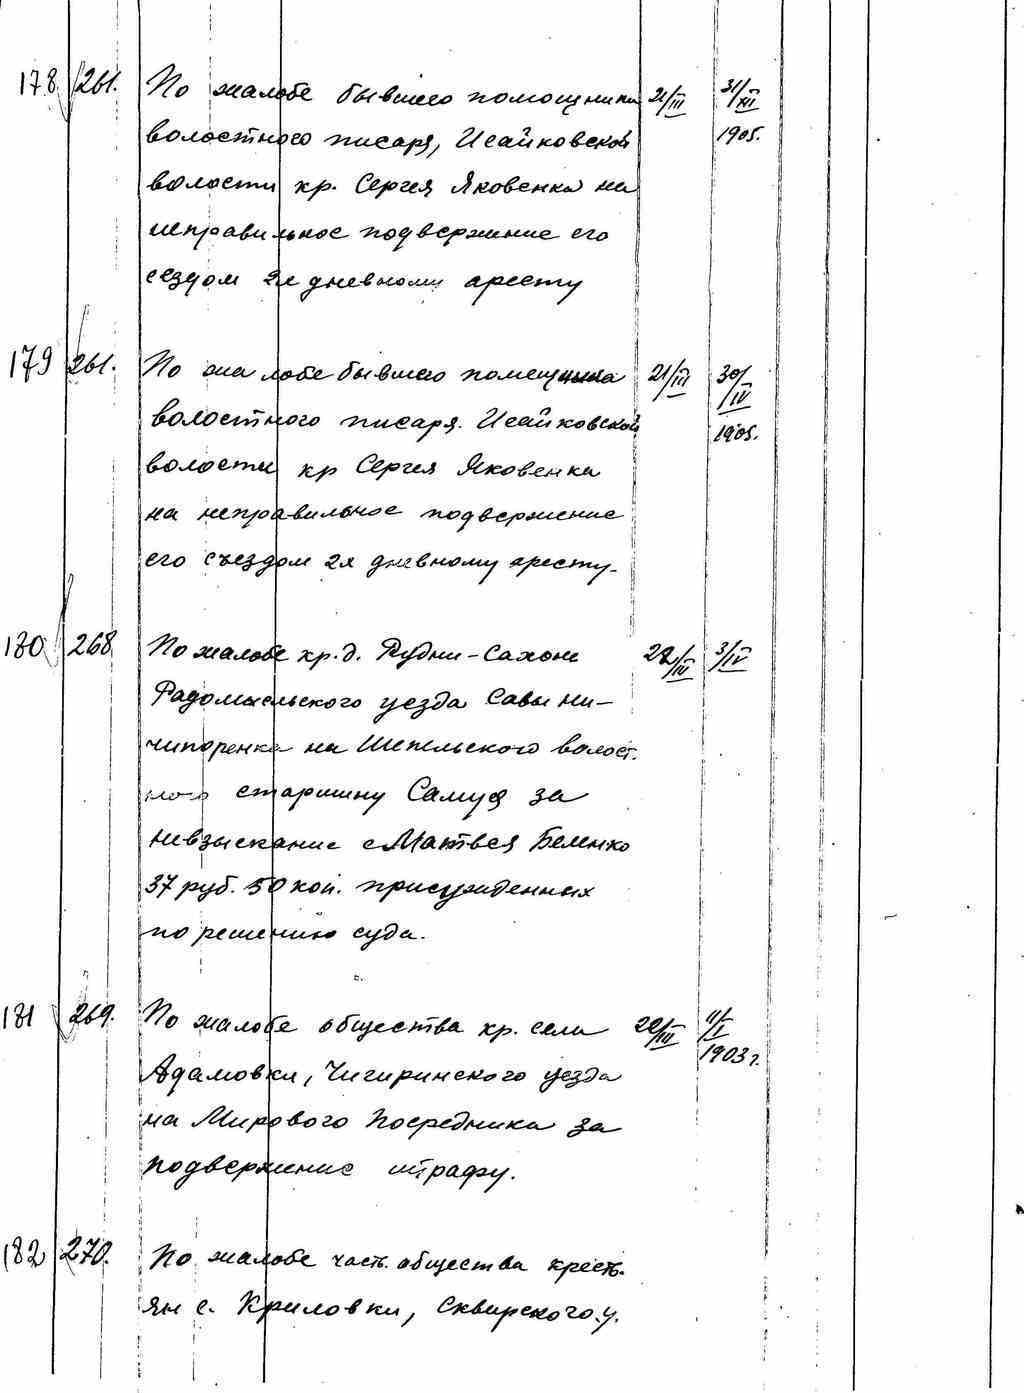 178 261. По жалобе бывшего помощника 21/III 31/XII
волостного писаря, Исайковской 1905.
волости кр. Сергея Яковенка на
неправильное подвержение его
сездом 2х дневному аресту
179 261. По жалобе бывшего помещника 21/III 30/IV
волостного писаря. Исайковской 1905.
волости кр Сергея Яковенка
на неправильное подвержение
его съездом 2х дневному аресту.
180 268 По жалобе кр. д. Рудни-Сахоне 22/IV 3/IV
Радомысльского уезда Савы Ни-
чипоренка на Шепельского волост.
ного старшину Самуя за
невзыскание с Матвея Беленко
37 руб. 50 коп. присужденных
по решению суда.
181 269. По жалобе общества кр. села 22/III 11/I
Адамовки, Чигиринского уезда 1903 г.
на Мирового Посредника за
подвержение штрафу.
182 270. По жалобе часть общества кресть.
ян с. Криловки, Сквирского у.